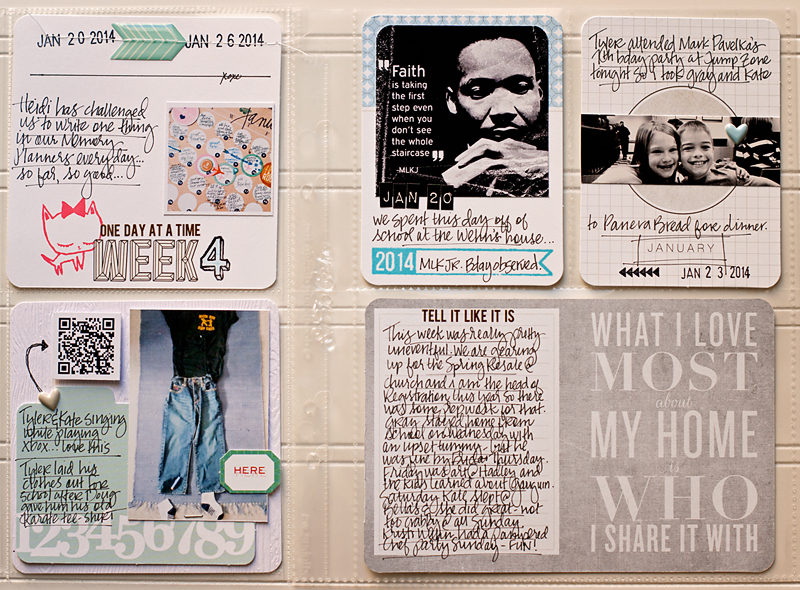 JAN 20 2014
JAN 26 2014
xoxo
Heidi has challenged
us to write one thing
in our Memory
Planners everyday...
so far, so good...
ONE DAY AT A TIME
WEEK 4
"Faith
is taking
the first
step even
when you
don't see
the whole
staircase"
-MLKJ
JAN 20
we spent this day off of
school at the Wehn's house...
2014 MLK JR. Bday observed.
Tyler attended Mark Pavelka's
bday party at Jump Zone
tonight so I took Gray and Kate
to Panera Bread for dinner.
JANUARY
JAN 23 2014
Tyler & Kate singing
while playing
xbox... love this
Tyler laid his
clothes out for
school after Doug
gave him his old
Karate tee-shirt!
HERE
123456789
TELL IT LIKE IT IS
This week was really pretty
uneventful. We are gearing
up for the Spring Resale @
church and I am the head of
Registration this year so there
was some prepwork for that.
Gray stayed home from
school on Wednesday with
an upset tummy but he
was fine by Thursday.
Friday was art @ Hadley and
the kids learned about Gauguin.
Saturday Kate slept @
Bella's & she did great - not
too crabby @ all Sunday.
Kristi had a Pampered
Chef party Sunday - FUN!
WHAT I LOVE
MOST
about
MY HOME
is
WHO
I SHARE IT WITH